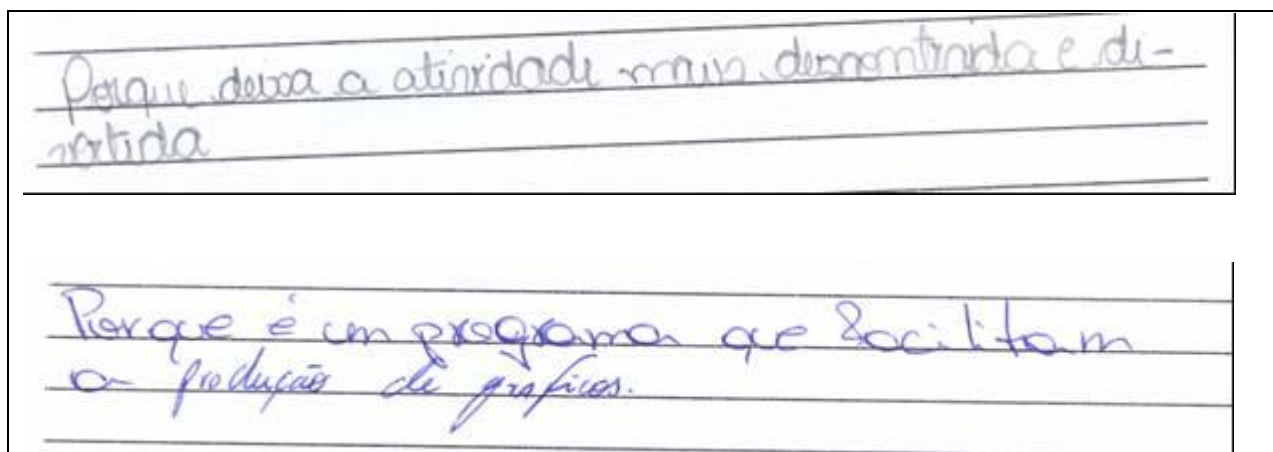 Porque deixa a atividade mais descontraida e di-
vertida
Porque é um programa que facilitam
a produção de gráficos.